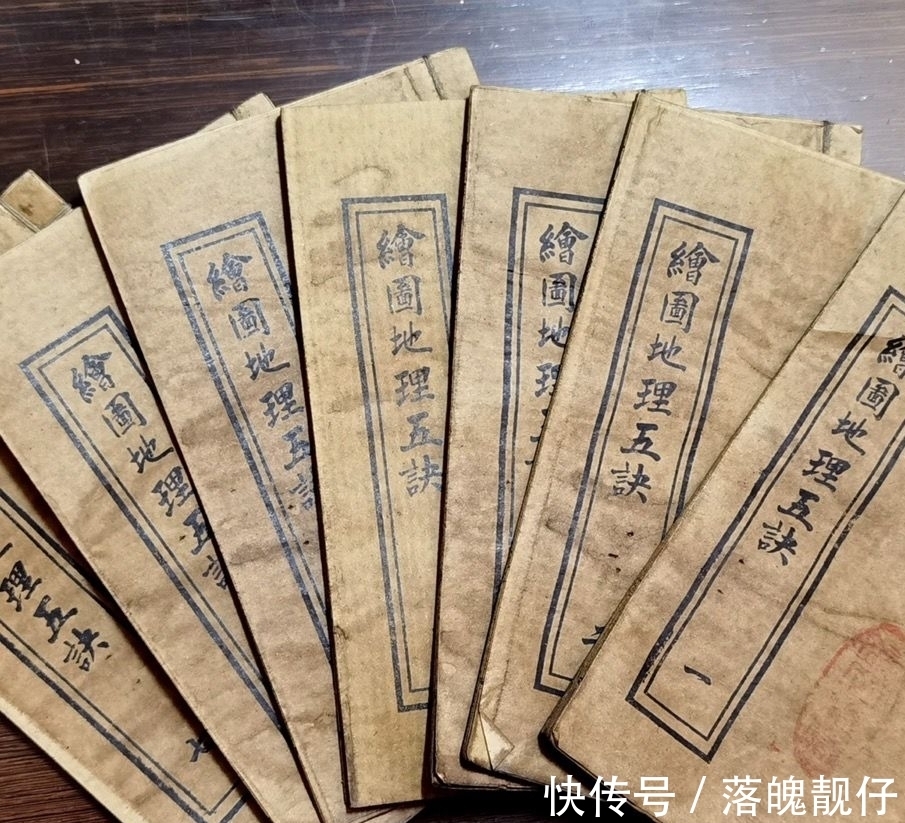 理五訣
七
繪圖地理五訣
繪圖地理五訣
繪圖地理五訣
繪圖地理五
繪圖地理五訣
二
繪圖地理五訣
一
快传号 / 落魄靓仔